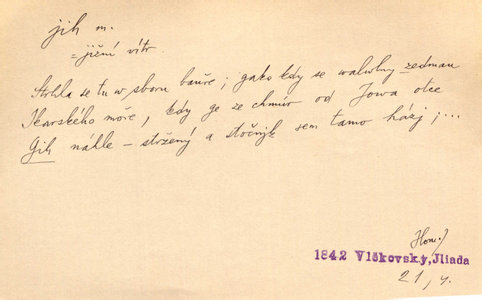 jih m.
= jižní vítr.
Strhla se tu w sboru bauře; gako kdy se walwlny zedmau
Ikarského moře, kdy ge ze chmúr od Jowa otce
Gih náhle - stržený a stočnýk sem tamo házj;...
Hom.J
1842 Vlčkovský,Jliada
21, 4.